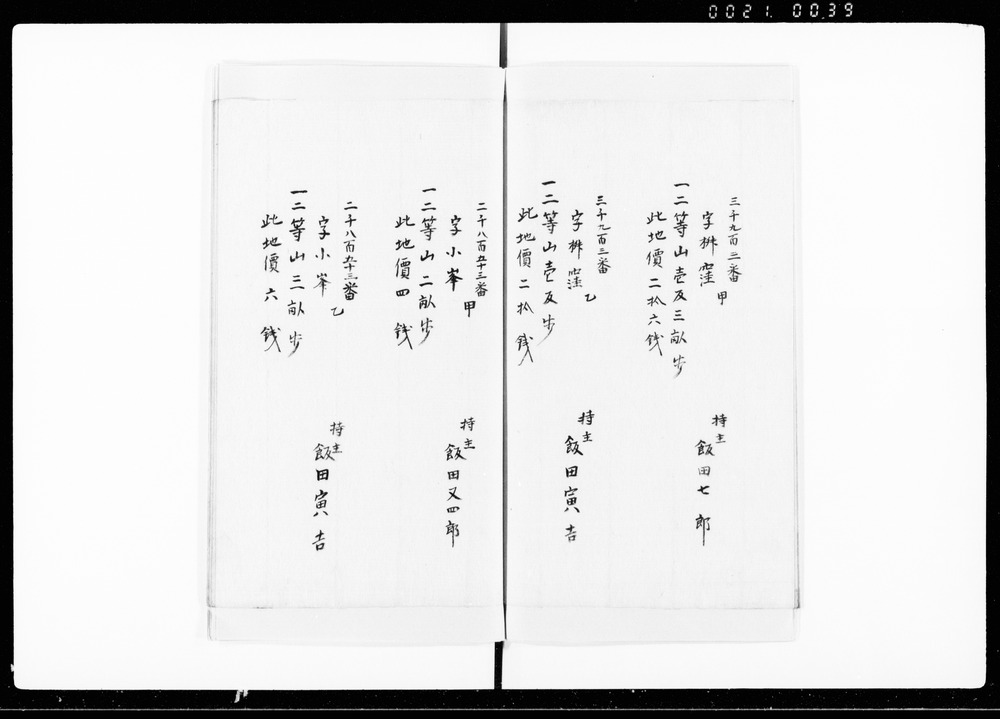 0021 0039
三千九百三番 甲
字桝窪
一二等山壱反三畝歩
此地價二拾六銭
持主
飯田七郎
三千九百三番 乙
字桝窪
一二等山壱反歩
此地價二拾銭
持主
飯田寅吉
二千八百五十三番 甲
字小峯
一二等山二畝歩
此地價四銭
持主
飯田又四郎
二千八百五十三番 乙
字小峯
一二等山三畝歩
此地價六銭
持主
飯田寅吉